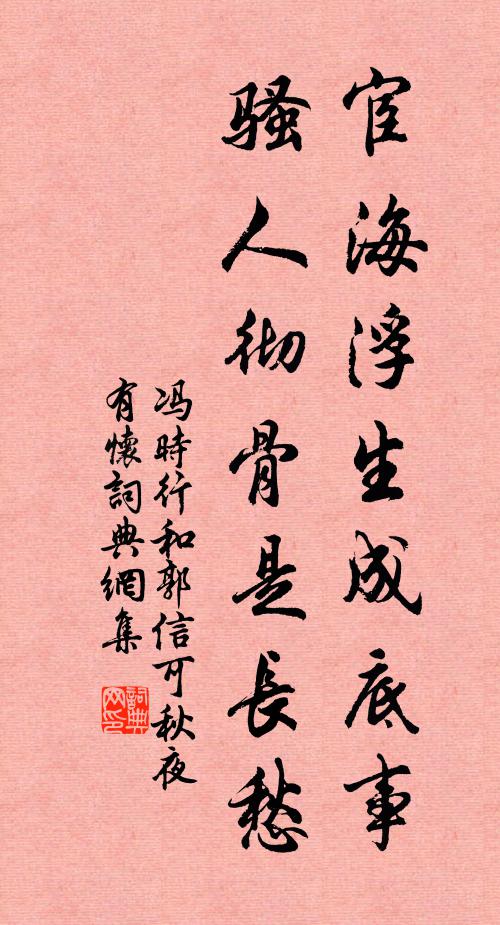 宦海浮生成底事
骚人彻骨是長愁
冯時行和郭信可秋夜
有懷詞典網集
詞典网印